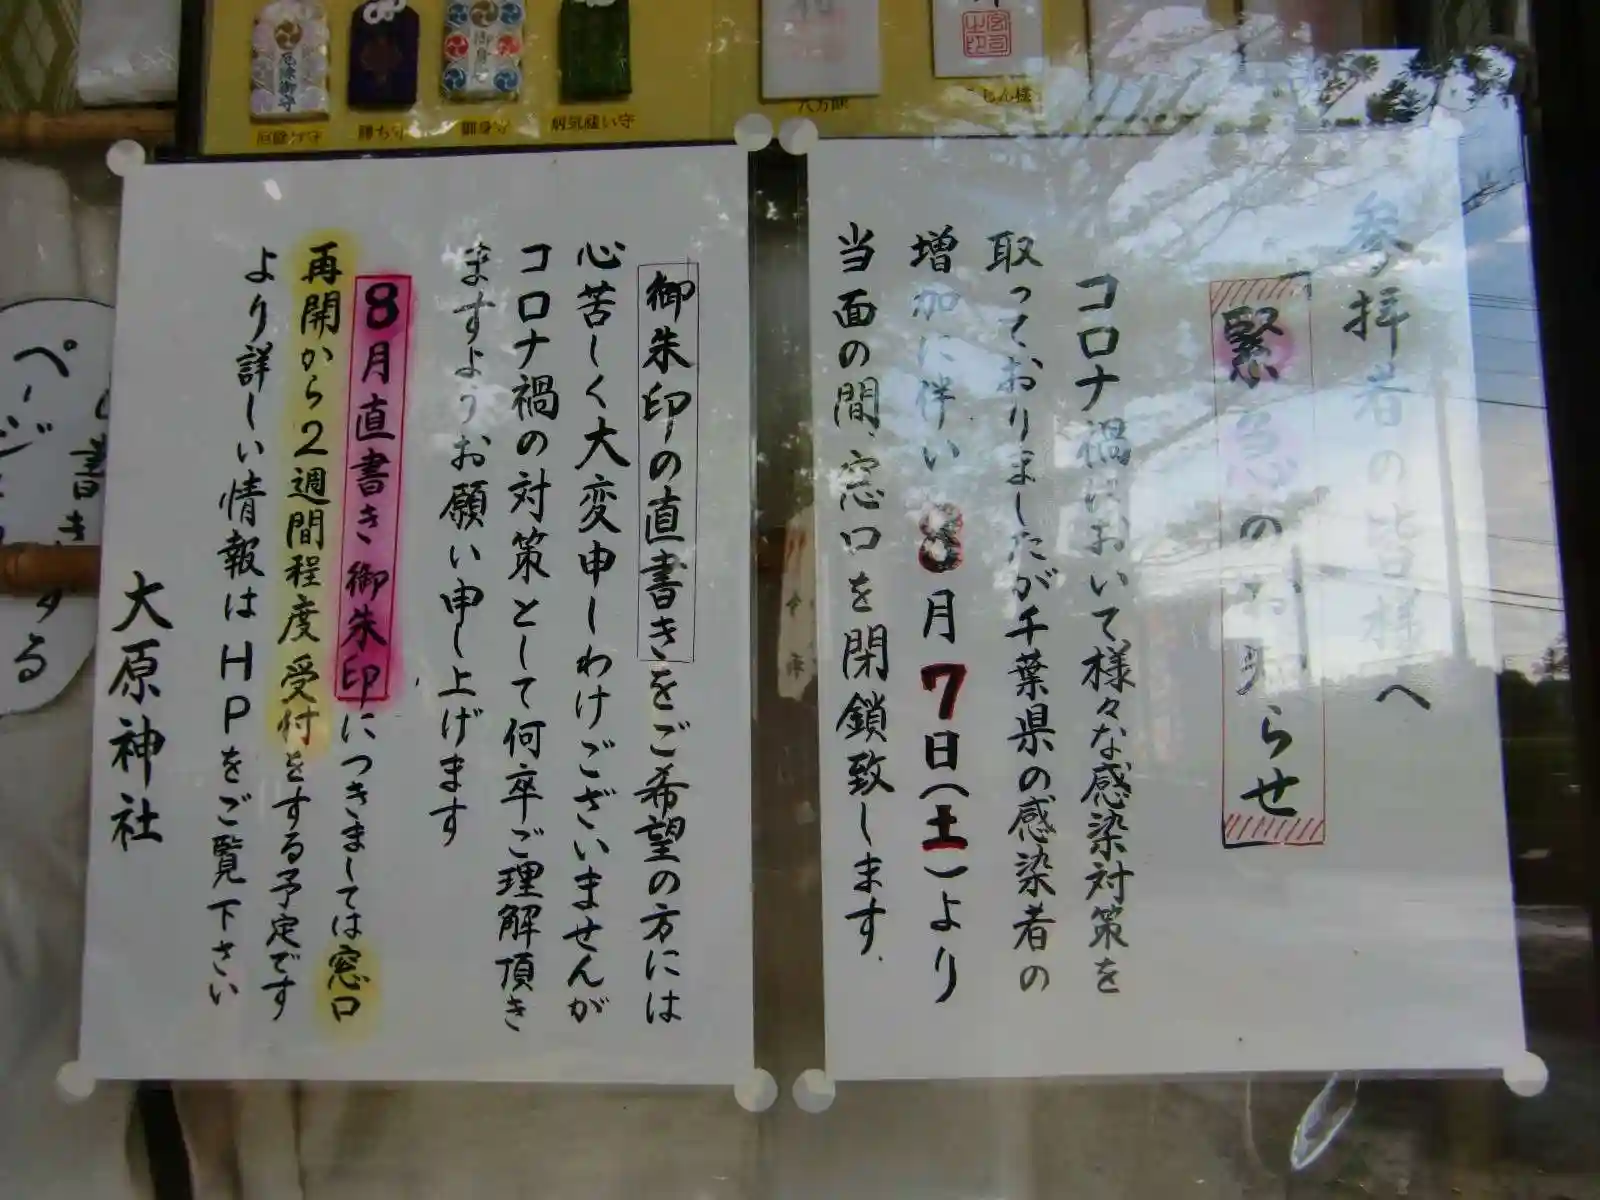 厄除御守
御身守
厄除け守
勝ち守
御身守
病気縫い守
宮司
之印
参拝者の皆様へ
緊急のお知らせ
コロナ禍において様々な感染対策を
取っておりましたが千葉県の感染者の
増加に伴い8月7日(土)より
当面の間、窓口を閉鎖致します.
御朱印の直書きをご希望の方には
心苦しく大変申しわけございませんが
コロナ禍の対策として何卒ご理解頂き
ますようお願い申し上げます
8月直書き御朱印につきましては窓口
再開から2週間程度受付をする予定です
より詳しい情報はHPをご覧下さい
大原神社
書き
ページ
する